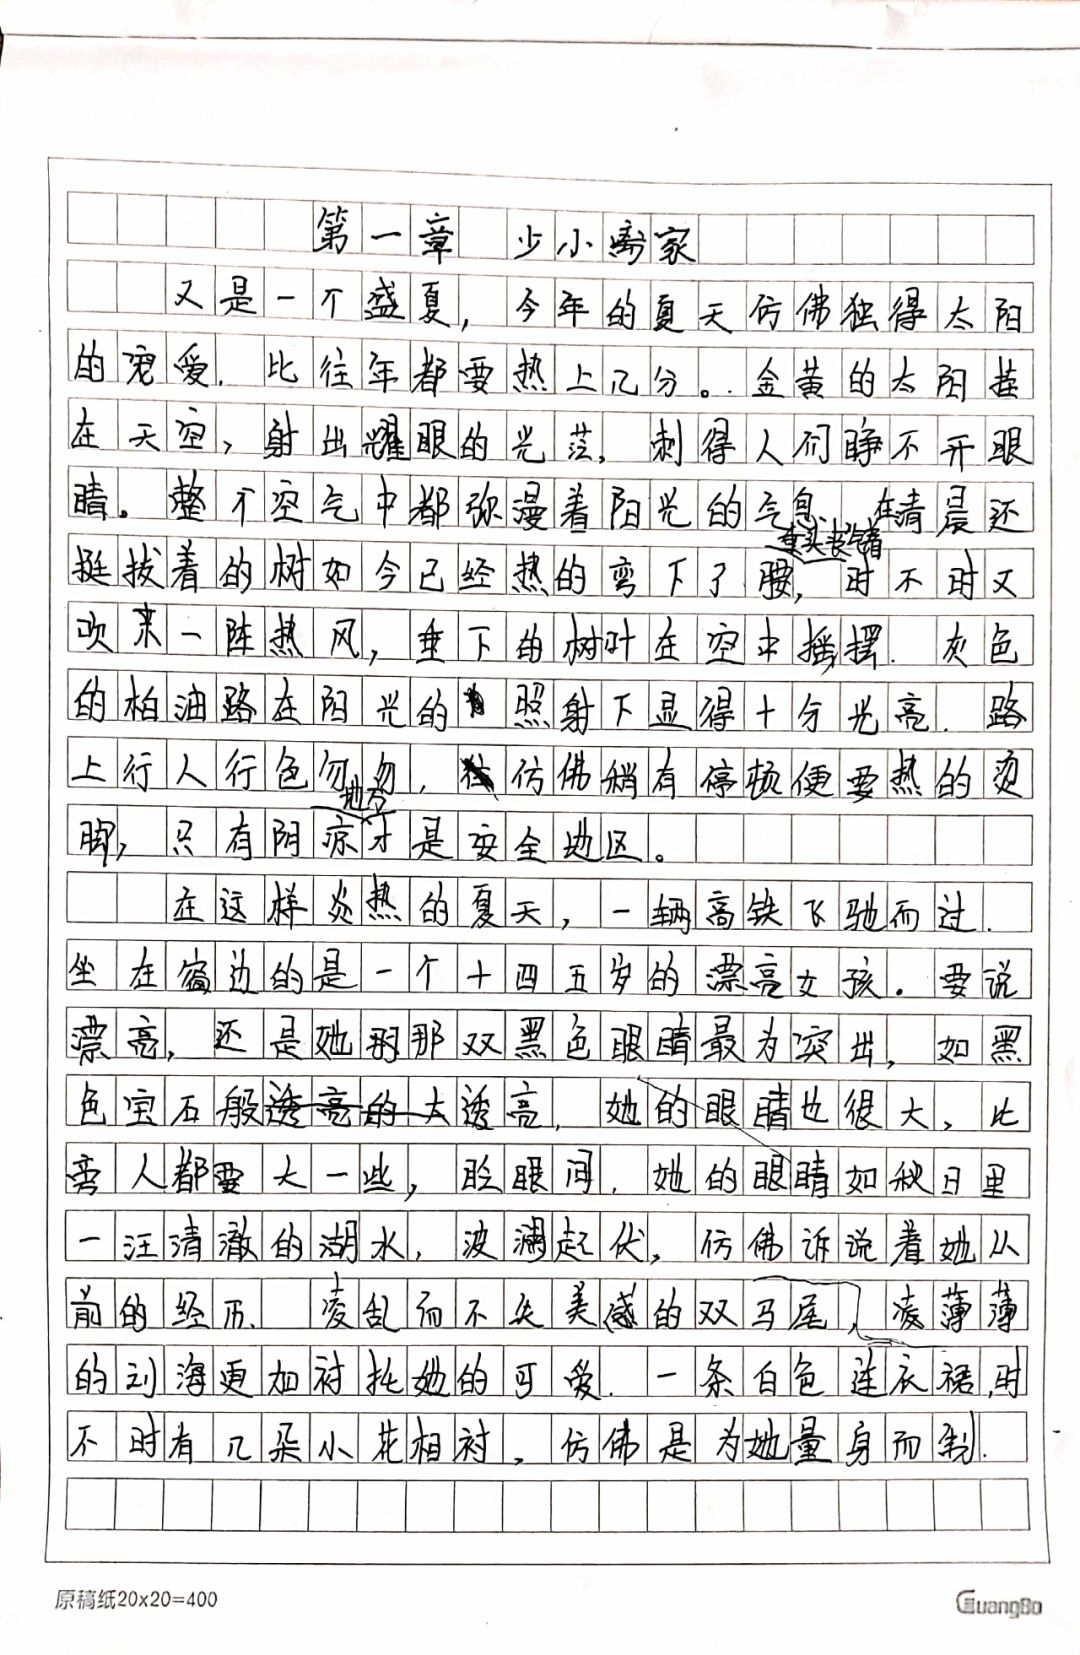 第一章 少小离家
又是一个盛夏，今年的夏天仿佛独得太阳
的宠爱，比往年都要热上几分。金黄的太阳挂
在天空，射出耀眼的光茫，刺得人们睁不开眼
睛。整个空气中都弥漫着阳光的气息，在清晨还
垂头丧气着
挺拔着的树如今已经热的弯下了腰，时不时又
吹来一阵热风，垂下的树叶在空中摇摆．灰色
的柏油路在阳光的照射下显得十分光亮．路
上行人行色匆匆，仿佛稍有停顿便要热的烫
地方
脚，只有阴凉才是安全地区。
在这样炎热的夏天，一辆高铁飞驰而过．
坐在窗边的是一个十四五岁的漂亮女孩．要说
漂亮，还是她那双黑色眼睛最为突出，如黑
色宝石般透亮的大透亮，她的眼睛也很大，比
旁人都要大一些，眨眼间，她的眼睛如秋日里
一汪清澈的湖水，波澜起伏，仿佛诉说着她从
前的经历．凌乱而不失美感的双马尾，凌薄薄
的刘海更加衬托她的可爱．一条白色连衣裙，时
不时有几朵小花相衬，仿佛是为她量身而制．
原稿纸20x20=400
GuangBo